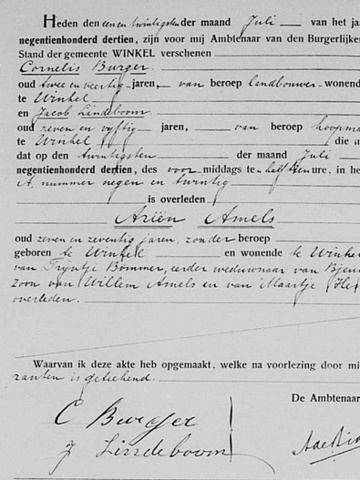 Heden den een en twintigsten der maand Juli van het ja
negentienhonderd dertien, zijn voor mij Ambtenaar van den Burgerlijke
Stand der gemeente WINKEL verschenen
Cornelis Burger
oud twee en veertig jaren, van beroep landbouwer wonend
te Winkel
en Jacob Lindeboom
oud zeven en vijftig jaren, van beroep koopma
te Winkel die a
dat op den twintigsten der maand Juli
negentienhonderd dertien, des voor middags te half tien ure, in he
A, nummer negen en twintig
is overleden
Ariën Amels
oud zeven en zeventig jaren, zonder beroep
geboren te Winkel en wonende te Winke
van Trijntje Bommer, eerder weduwnaar van
zoon van Willem Amels en van Maartje
overleden.
Waarvan ik deze akte heb opgemaakt, welke na voorlezing door mi
ranten is geteekend.
De Ambtenaar
C Burger
J Lindeboom